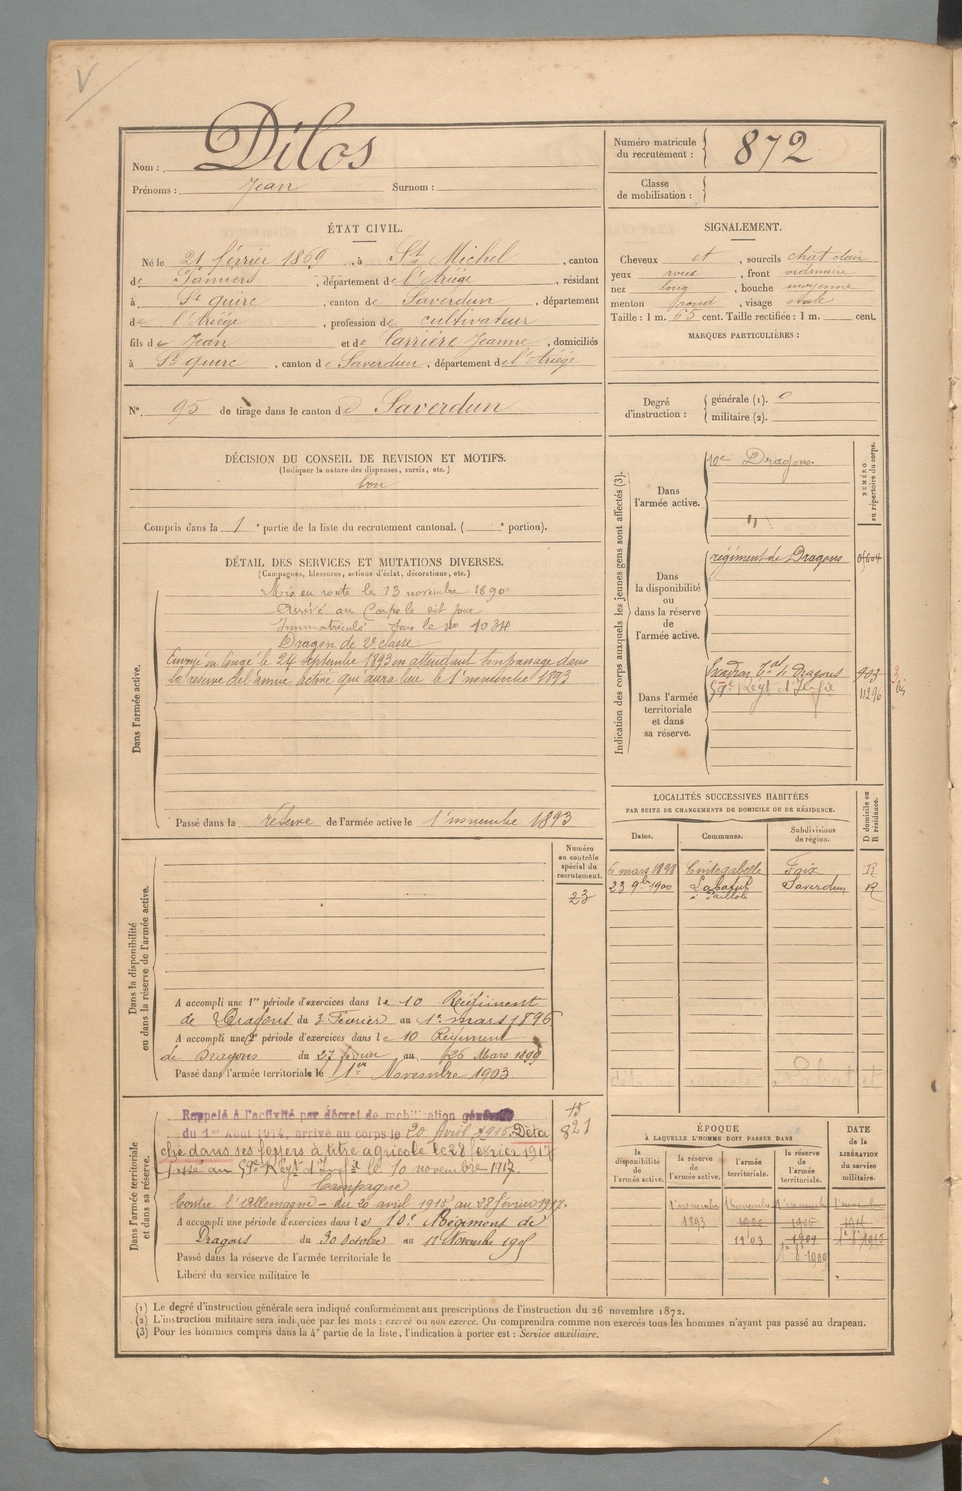 Nom : Dilos
Prénoms : Jean Surnom :
Numéro matricule du recrutement : 872
Classe de mobilisation :
ÉTAT CIVIL.
Né le 21 février 1869, à St Michel, canton
de Pamiers, département de l'Ariége, résidant
à St quirc, canton de Saverdun, département
de l'Ariége, profession de cultivateur
fils de Jean et de Carrière Jeanne, domiciliés
à St quirc, canton de Saverdun, département de l'Ariége
SIGNALEMENT.
Cheveux et, sourcils chat clair
yeux roux, front ordinaire
nez long, bouche moyenne
menton rond, visage ovale
Taille : 1 m. 65 cent. Taille rectifiée : 1 m. cent.
MARQUES PARTICULIÈRES :
N° 95 de tirage dans le canton de Saverdun
Degré d'instruction : générale (1). 0
militaire (2).
DÉCISION DU CONSEIL DE REVISION ET MOTIFS.
(Indiquer la nature des dispenses, sursis, etc.)
bon
Compris dans la 1e partie de la liste du recrutement cantonal. ( e portion).
DÉTAIL DES SERVICES ET MUTATIONS DIVERSES.
(Campagnes, blessures, actions d'éclat, décorations, etc.)
Dans l'armée active.
Mis en route le 13 novembre 1890
Arrivé au Corps le dit jour
Immatriculé sous le no 1034
Dragon de 2e classe
Envoyé en congé le 24 septembre 1893 en attendant son passage dans
la réserve de l'armée active qui aura lieu le 1er novembre 1893
Passé dans la réserve de l'armée active le 1er novembre 1893
Indication des corps auxquels les jeunes gens sont affectés (3).
NUMÉRO au répertoire du corps.
Dans l'armée active.
10e Dragons.
Dans la disponibilité ou dans la réserve de l'armée active.
régiment de Dragons
Dans l'armée territoriale et dans sa réserve.
Escadron Tal de Dragons 903
59e Régt d'Infie 11296 bis
LOCALITÉS SUCCESSIVES HABITÉES
PAR SUITE DE CHANGEMENTS DE DOMICILE OU DE RÉSIDENCE.
D domicile ou R résidence.
Dates. Communes. Subdivisions de région.
6 mars 1898 Cintegabelle Foix R
23 9bre 1900 Labatut Saverdun R
Dans la disponibilité ou dans la réserve de l'armée active.
Numéro au contrôle spécial du recrutement.
23
A accompli une 1re période d'exercices dans le 10 Régiment
de Dragons du 3 Février au 1er mars 1896
A accompli une 2e période d'exercices dans le 10 Régiment
de Dragons du 27 février au 26 Mars 1899
Passé dans l'armée territoriale le 1er Novembre 1903
Dans l'armée territoriale et dans sa réserve.
15
821
Rappelé à l'activité par décret de mobilisation générale
du 1er Août 1914, arrivé au corps le 20 Avril 1915. Déta
ché dans ses foyers à titre agricole le 27 février 1917
Passé au 59e Régt d'Infie le 10 novembre 1917.
Campagne
Contre l'Allemagne - du 20 avril 1915 au 28 février 1917.
A accompli une période d'exercices dans le 10e Régiment de
Dragons du 30 Octobre au 11 Novembre 1905
Passé dans la réserve de l'armée territoriale le
Libéré du service militaire le
ÉPOQUE
À LAQUELLE L'HOMME DOIT PASSER DANS
DATE de la LIBÉRATION du service militaire.
la disponibilité de l'armée active. la réserve de l'armée active. l'armée territoriale. la réserve de l'armée territoriale.
1er novembre 1er novembre 1er novembre 1er novembre
1893 1903 1909
(1) Le degré d'instruction générale sera indiqué conformément aux prescriptions de l'instruction du 26 novembre 1872.
(2) L'instruction militaire sera indiquée par les mots : exercé ou non exercé. On comprendra comme non exercés tous les hommes n'ayant pas passé au drapeau.
(3) Pour les hommes compris dans la 4e partie de la liste, l'indication à porter est : Service auxiliaire.